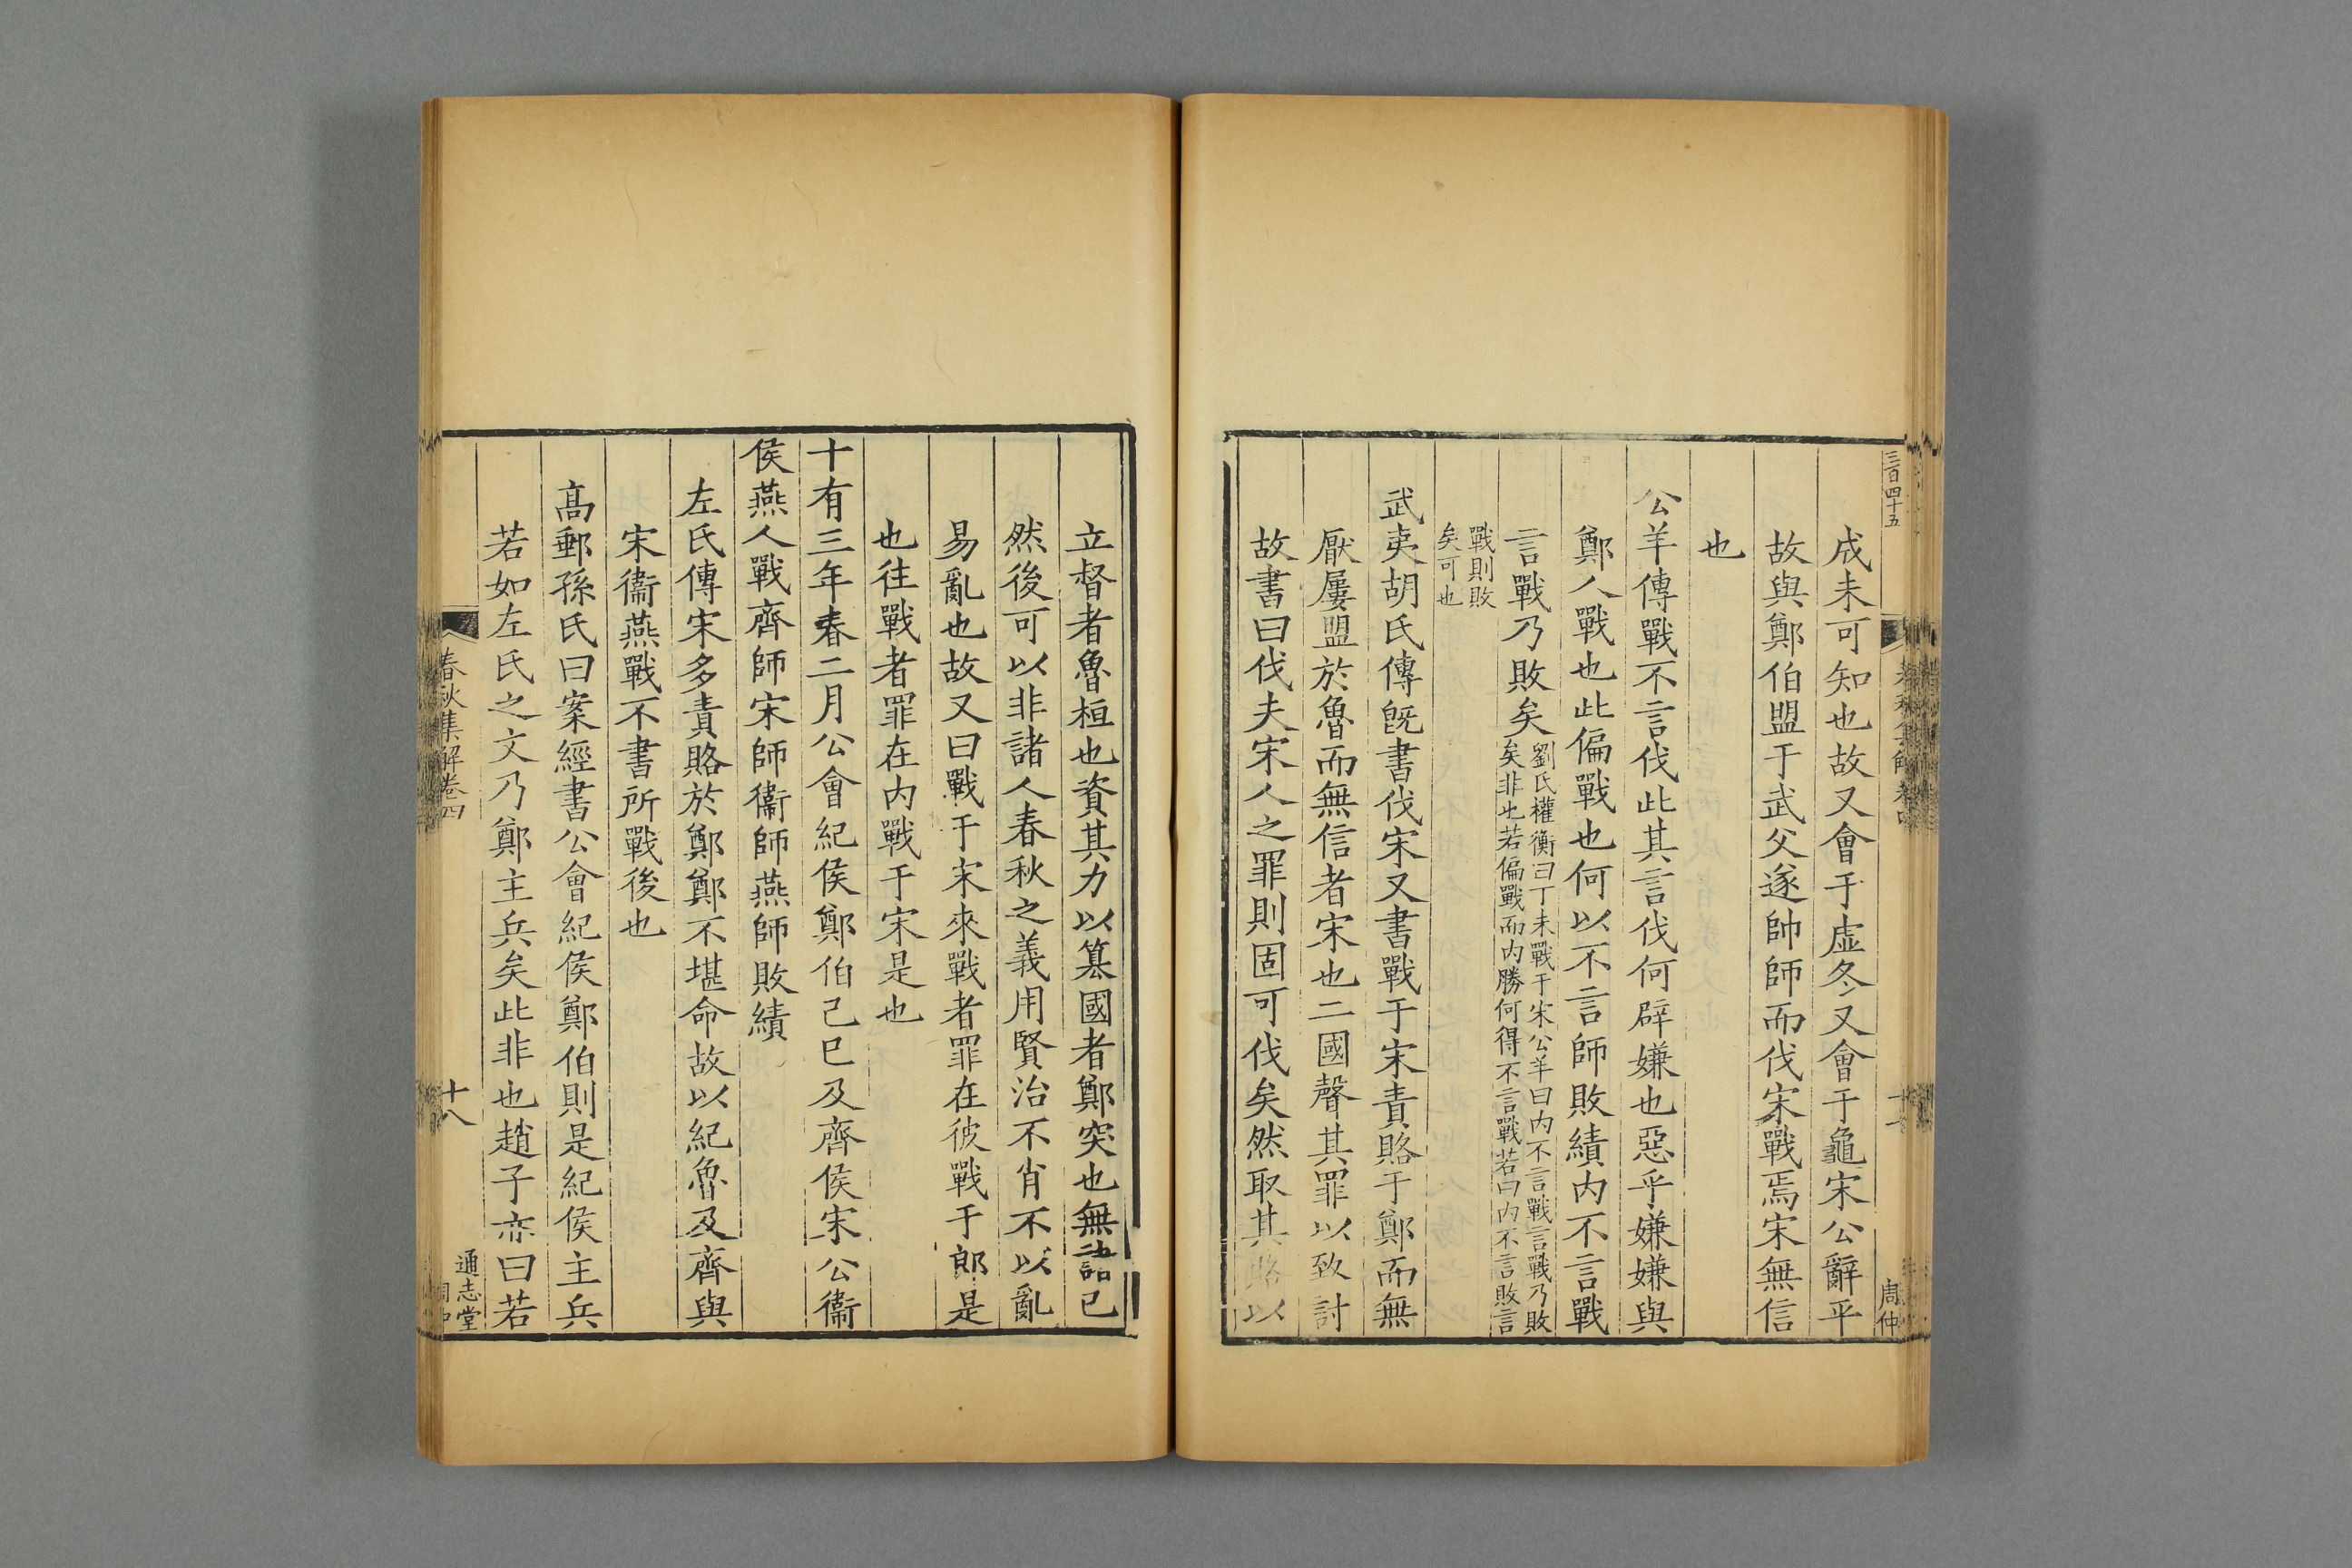 三百四十五
周仲
成未可知也故又會于虛冬又會于龜宋公辭平
故與鄭伯盟于武父遂帥師而伐宋戰焉宋無信
也
公羊傳戰不言伐此其言伐何辟嫌也惡乎嫌嫌與
鄭人戰也此偏戰也何以不言師敗績內不言戰
言戰乃敗矣
劉氏權衡曰丁未戰于宋公羊曰內不言戰言戰乃敗
矣非也若偏戰而內勝何得不言戰若曰內不言敗言
戰則敗
矣可也
武夷胡氏傳旣書伐宋又書戰于宋責賂于鄭而無
厭屢盟於魯而無信者宋也二國聲其罪以致討
故書曰伐夫宋人之罪則固可伐矣然取其賂以
立督者魯桓也資其力以篡國者鄭突也無諸己
然後可以非諸人春秋之義用賢治不肖不以亂
易亂也故又曰戰于宋來戰者罪在彼戰于郎是
也往戰者罪在內戰于宋是也
十有三年春二月公會紀侯鄭伯己巳及齊侯宋公衞
侯燕人戰齊師宋師衞師燕師敗績
左氏傳宋多責賂於鄭鄭不堪命故以紀魯及齊與
宋衞燕戰不書所戰後也
高郵孫氏曰案經書公會紀侯鄭伯則是紀侯主兵
若如左氏之文乃鄭主兵矣此非也趙子亦曰若
春秋集解卷四
十八
通志堂